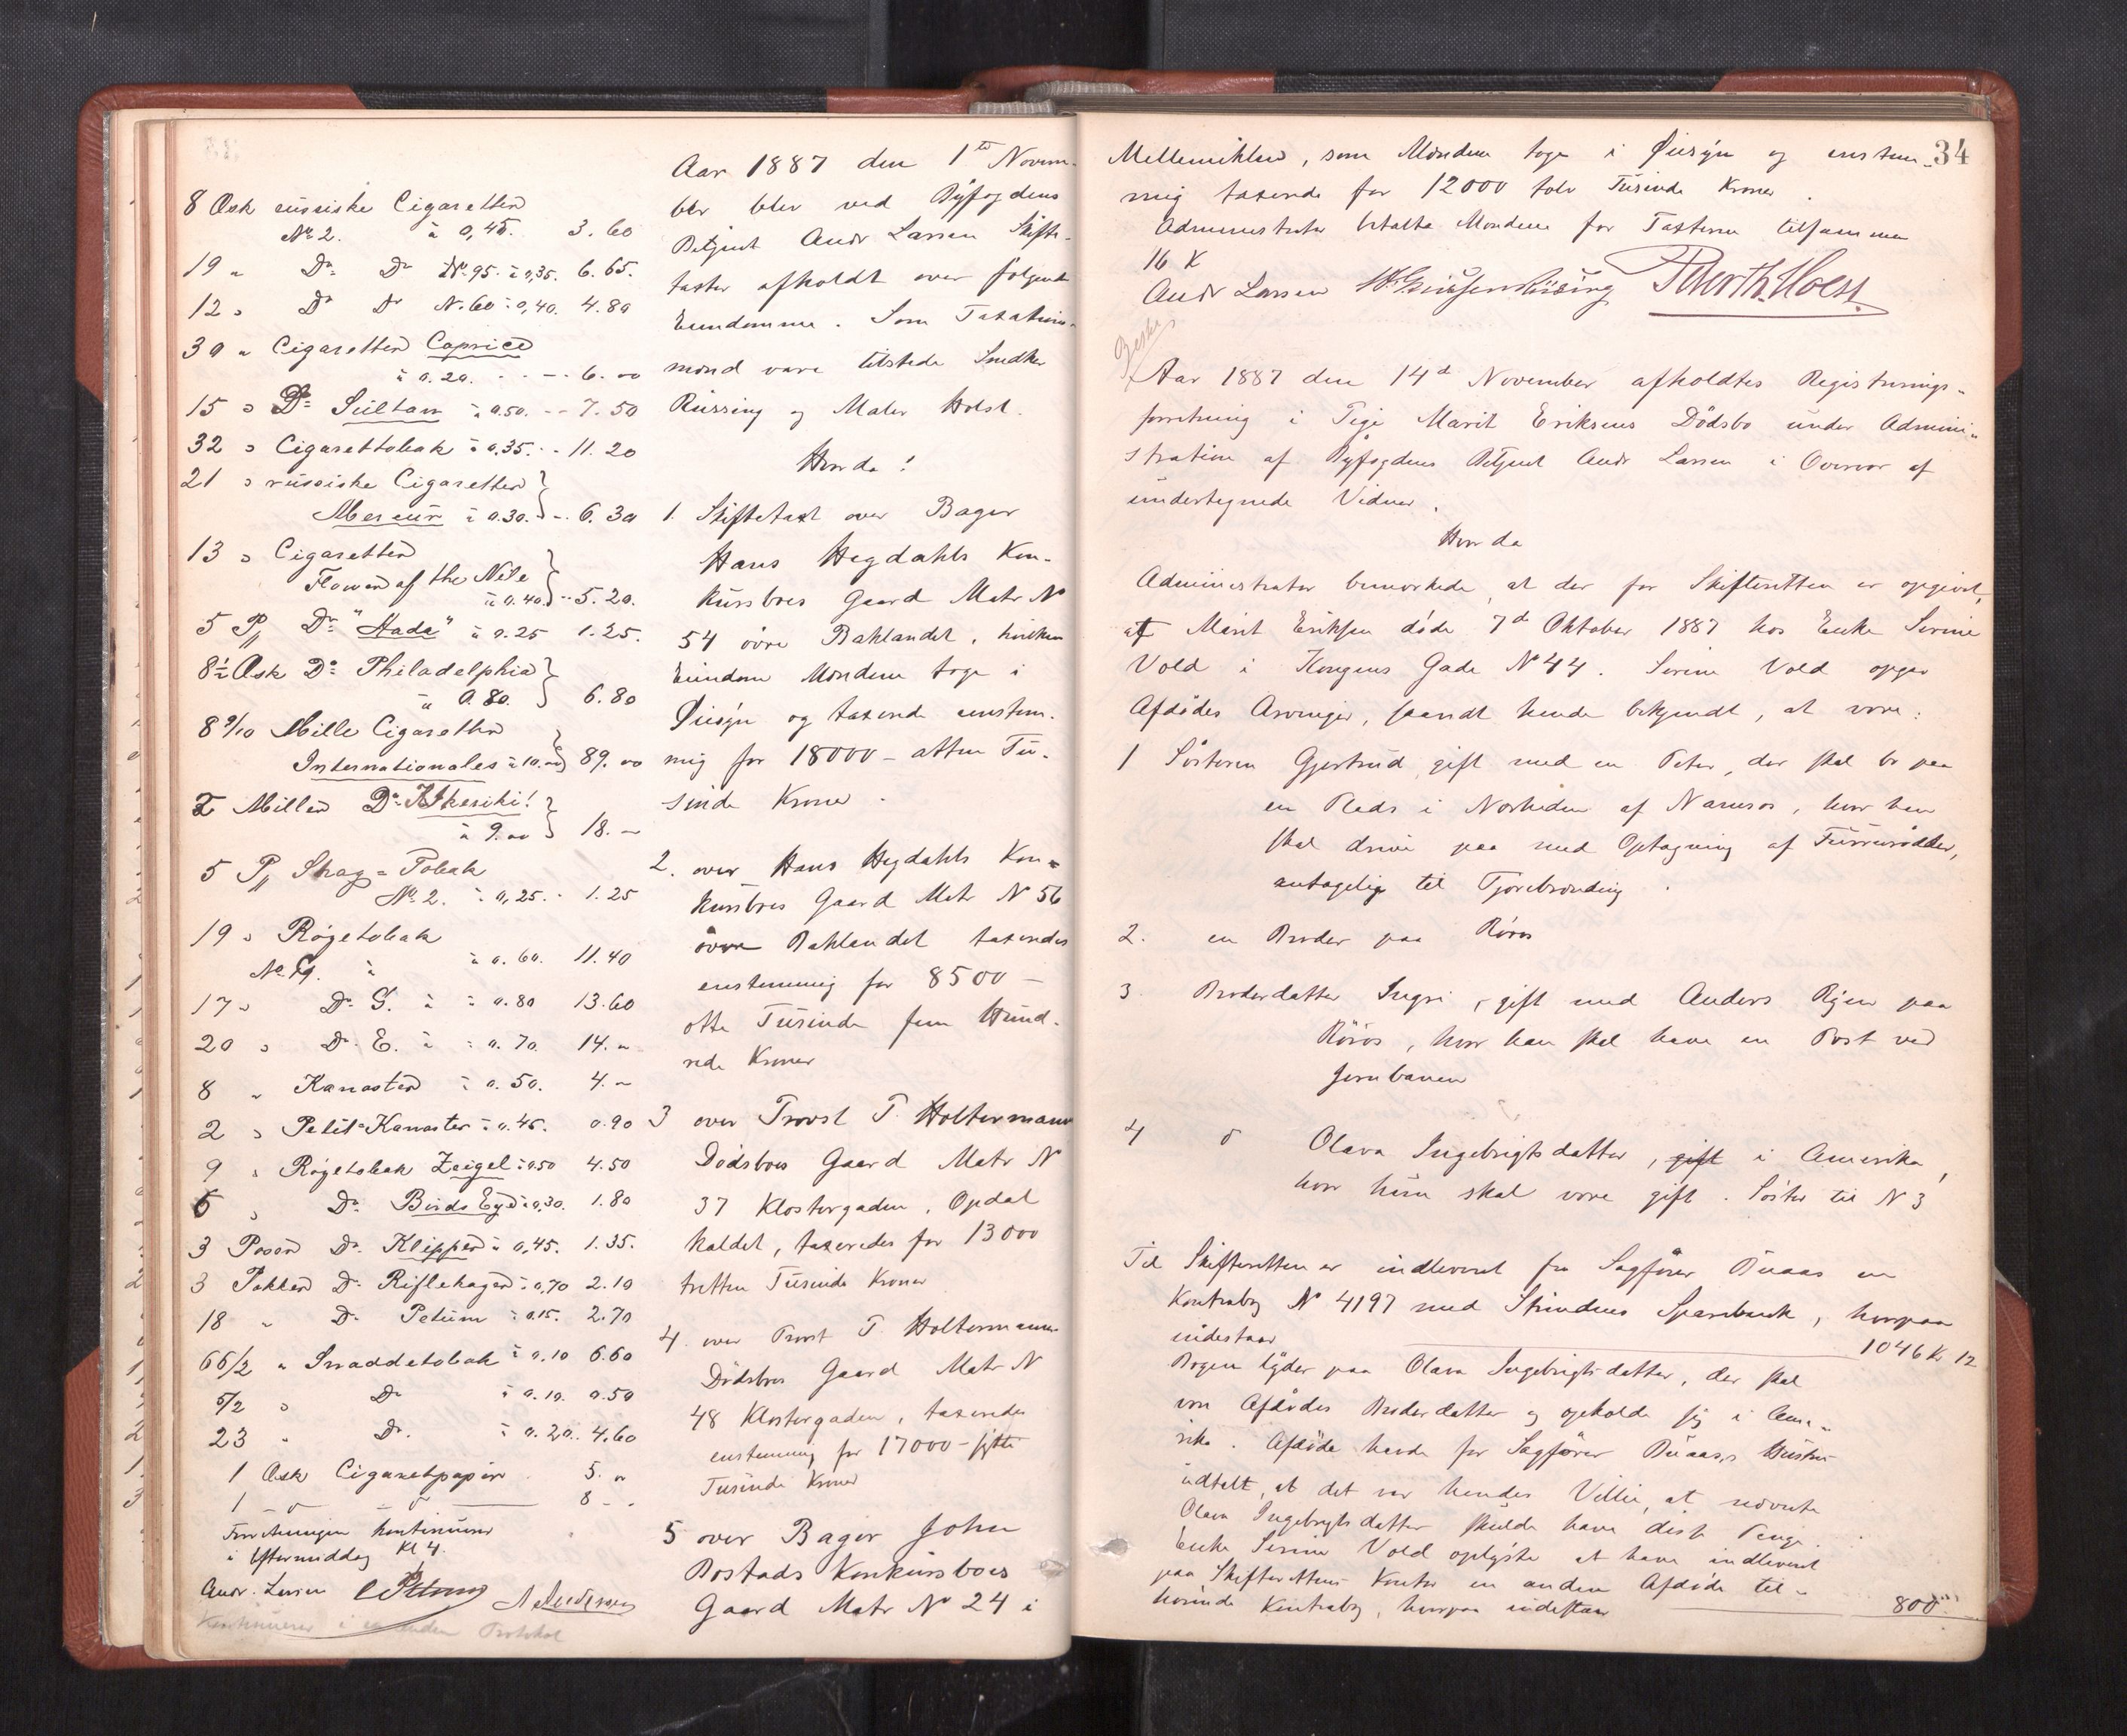 8 Ask russiske Cigaretter
No 2. à 0,45. 3.60
19 " Do Do No 95. à 0,35. 6.65.
12 " Do Do No 60 à 0,40. 4.80
30 " Cigaretter Caprice
à 0.20. 6.00
15 " Do Sultan à 0.50. 7.50
32 " Cigarettobak à 0,35. 11.20
21 " russiske Cigaretter
Mercur à 0.30. 6.30
13 " Cigaretter
Flower of the Nile
à 0.40. 5.20.
5 Pd Do "Hada" à 0.25 1.25.
8½ Ask Do Philadelphia
à 0.80. 6.80
8 9/10 Mille Cigaretter
Internationales à 10.00 89.00
2 Miller Do
à 9.00 18.-
5 Pd Shag-Tobak
No 2. à 0,25. 1.25
19 " Røgetobak
No à 0.60. 11.40
17 " Do G. à 0.80 13.60
20 " Do E. à 0.70. 14.-
8 " Kanaster à 0.50. 4.-
2 " Petit-Kanaster à 0.45. 0.90
9 " Røgetobak Zeigel à 0.50 4.50
6 " Do Birds Eye à 0,30. 1.80
3 Poser Do Klipper à 0,45. 1.35.
3 Pakker Do Riflekager à 0,70 2.10
18 " Do Petum à 0.15. 2.70
66/2 " Snaddetobak à 0.10 6.60
5/2 " Do à 0.10. 0.50
23 " Do à 0.20. 4.60
1 Ask Cigaretpapir 5.
1 8
Forretningen kontinuerer
i Eftermiddag Kl 4.
Andr. Larsen
Kontinuerer i en anden Protokol
Aar 1887 den 1ste Novem-
ber blev ved Byfogdens
Betjent Andr Larsen Skifte-
taxter afholdt over følgende
Eiendomme. Som Taxations-
mænd vare tilstede Snedker
Rüssing og Maler Holst.
Hvorda!
1. Skiftetaxt over Bager
Hans Hegdahls Kon-
kursboes Gaard Matr No
54 øvre Baklandet, hvilken
Eiendom Mændene toge i
Øiesyn og taxerede enstem-
mig for 18000 - atten Tu-
sinde Kroner.
2. over Hans Hegdahls Kon-
kursboes Gaard Matr No 56
øvre Baklandet taxeredes
enstemmig for 8500 -
otte Tusinde fem Hund-
rede Kroner
3 over Provst T. Holtermanns
Dødsboes Gaard Matr No
37 Klostergaden, Opdal
kaldet, taxeredes for 13000
tretten Tusinde Kroner
4. over Provst T. Holtermanns
Dødsboes Gaard Matr No
48 Klostergaden, taxeredes
enstemmig for 17000 - sytten
Tusinde Kroner
5 over Bager John
Rostads Konkursboes
Gaard Matr No 24 i
34
Mellemiklen, som Mændene toge i Øiesyn og enstem-
mig taxerede for 12000 tolv Tusinde Kroner.
Administrator betalte Mændene for Taxterne tilsammen
16 K
Andr Larsen
Aar 1887 den 14d November afholdtes Registrerings-
forretning i Pige Marit Eriksens Dødsbo under Admini-
stration af Byfogdens Betjent Andr Larsen i Overvær af
undertegnede Vidner.
Hvorda
Administrator bemærkede, at der for Skifteretten er opgivet,
at Marit Eriksen døde 7d Oktober 1887 hos Enke Serine
Vold i Kongens Gade No 44. Serine Vold opgav
Afdødes Arvinger, saavidt hende bekjendt, at være:
1 Søsteren Gjertrud, gift med en Peter, der skal bo paa
en Plads i Nærheden af Namsos, hvor han
skal drive paa med Optagning af Fururødder,
antagelig til Tjærebrænding.
2. en Broder paa Røros
3 Broderdatter Ingri, gift med Anders Rjen paa
Røros, hvor han skal have en Post ved
Jernbanen
4 d Olava Ingebrigtsdatter, gift i Amerika,
hvor hun skal være gift. Søster til No 3
Til Skifteretten er indleveret fra Sagfører Buaas en
Kontrabog No 4197 med Strindens Sparebank, hvorpaa
indestaar 1046 Kr 12
Bogen lyder paa Olava Ingebrigtsdatter, der skal
være Afdødes Broderdatter og opholde sig i Ame-
rika. Afdøde havde for Sagfører Buaas's Hustru
udtalt, at det var hendes Villie, at nævnte
Olava Ingebrigtsdatter skulde have disse Penge.
Enke Serine Vold oplyste at have indleveret
paa Skifterettens Kontor en anden Afdøde til-
hørende Kontrabog, hvorpaa indestaar 800